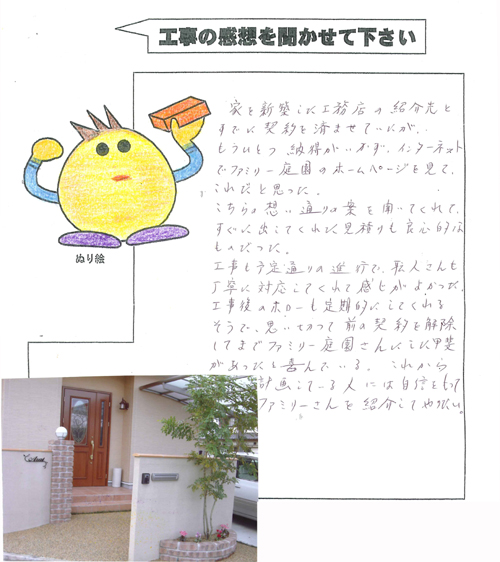 工事の感想を聞かせて下さい
家を新築した工務店の紹介先と
すでに契約を済ませていたが、
もうひとつ納得がいかず、インターネット
でファミリー庭園のホームページを見て、
これだと思った。
こちらの想い通りの案を聞いてくれて、
すぐに出してくれた見積りも良心的な
ものだった。
工事も予定通りの進行で、職人さんも
丁寧に対応してくれて感じがよかった。
工事後のホローも定期的にしてくれる
そうで、思い切って前の契約を解除
してまでファミリー庭園さんにした甲斐
があったと喜んでいる。これから
計画している人には自信をもって
ファミリーさんを紹介してやりたい。
ぬり絵